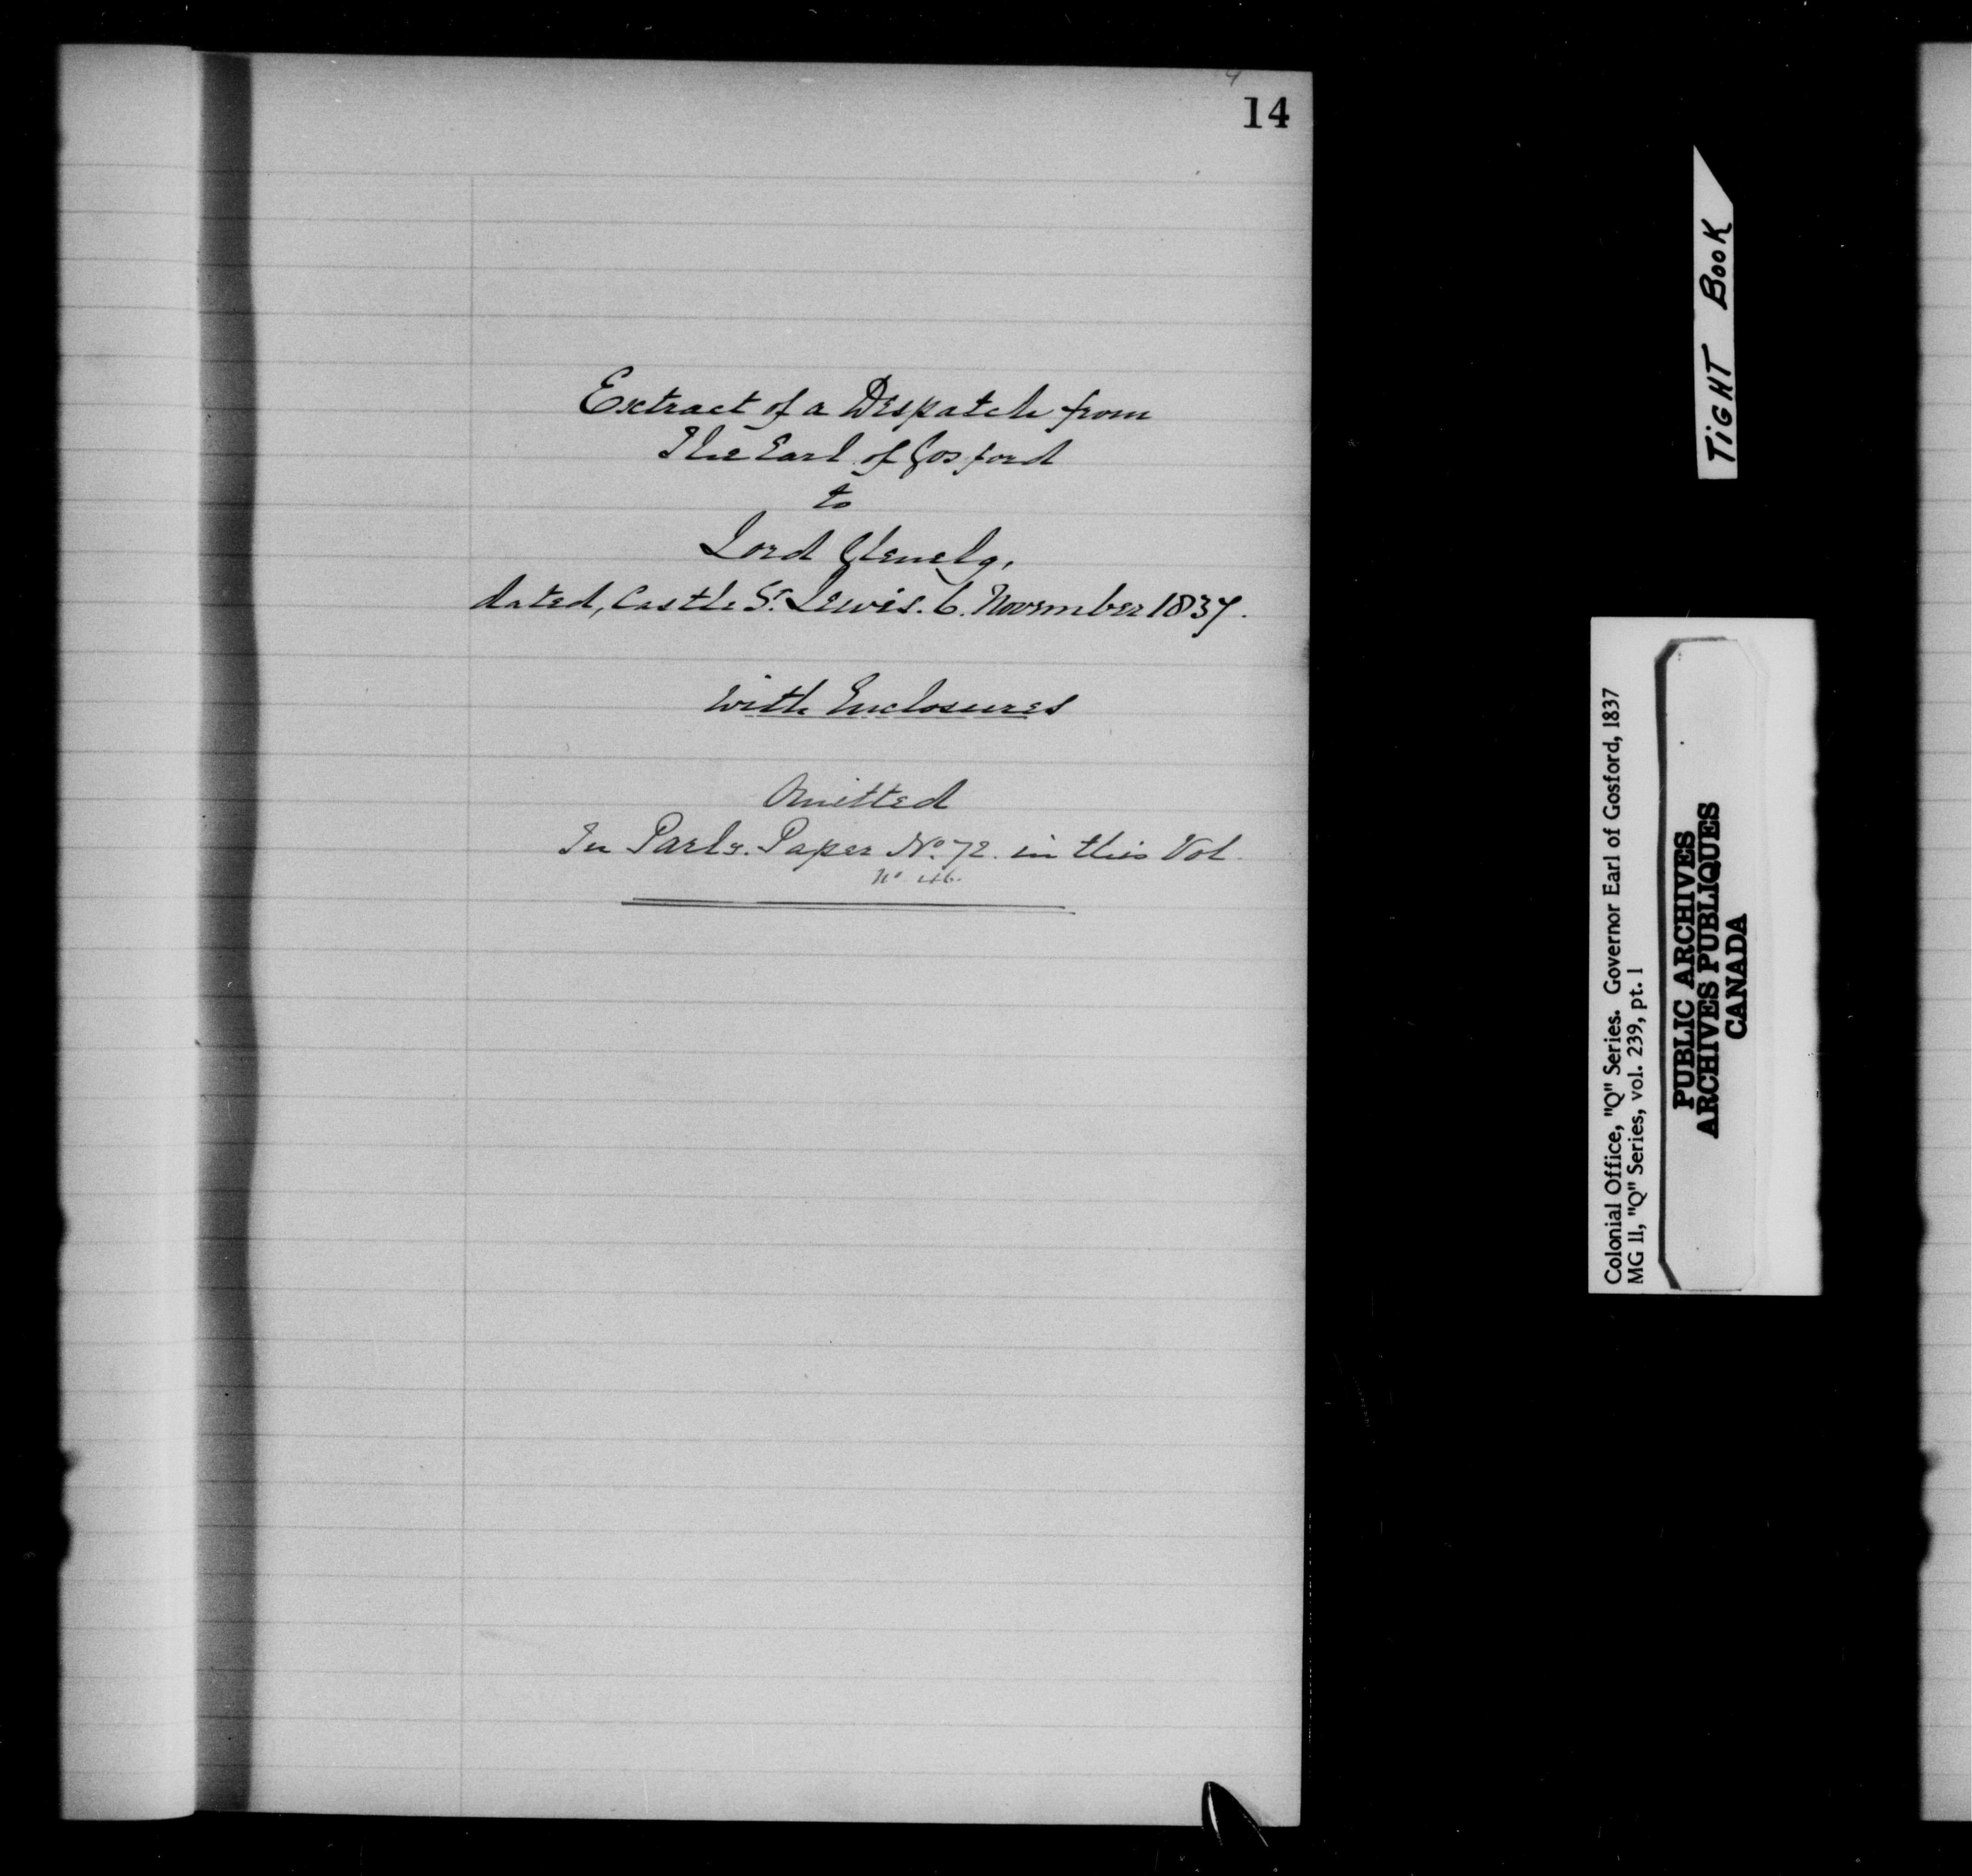 14
Extract of a Despatch from
The Earl of Gosford
to
Lord Glenelg,
dated, Castle St. Lewis. 6. November 1837.
with Enclosures
Omitted
In Parly. Paper No. 72. in this Vol.
No 46.
TIGHT BOOK
Colonial Office, "Q" Series. Governor Earl of Gosford, 1837
MG 11, "Q" Series, vol. 239, pt. 1
PUBLIC ARCHIVES
ARCHIVES PUBLIQUES
CANADA